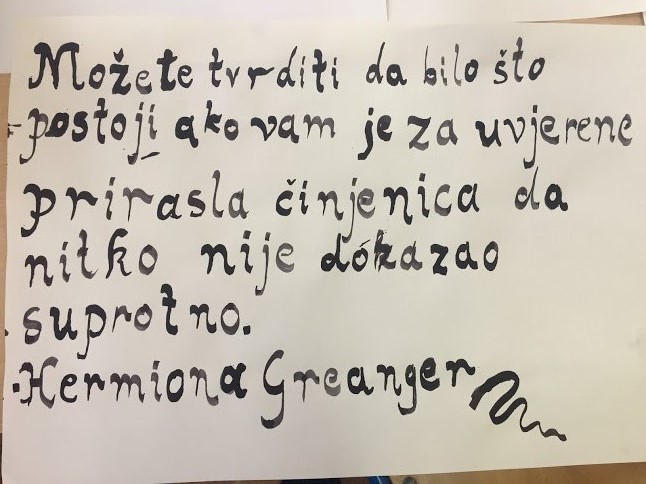 Možete tvrditi da bilo što
postoji ako vam je za uvjerene
prirasla činjenica da
nitko nije dokazao
suprotno.
-Hermiona Greanger